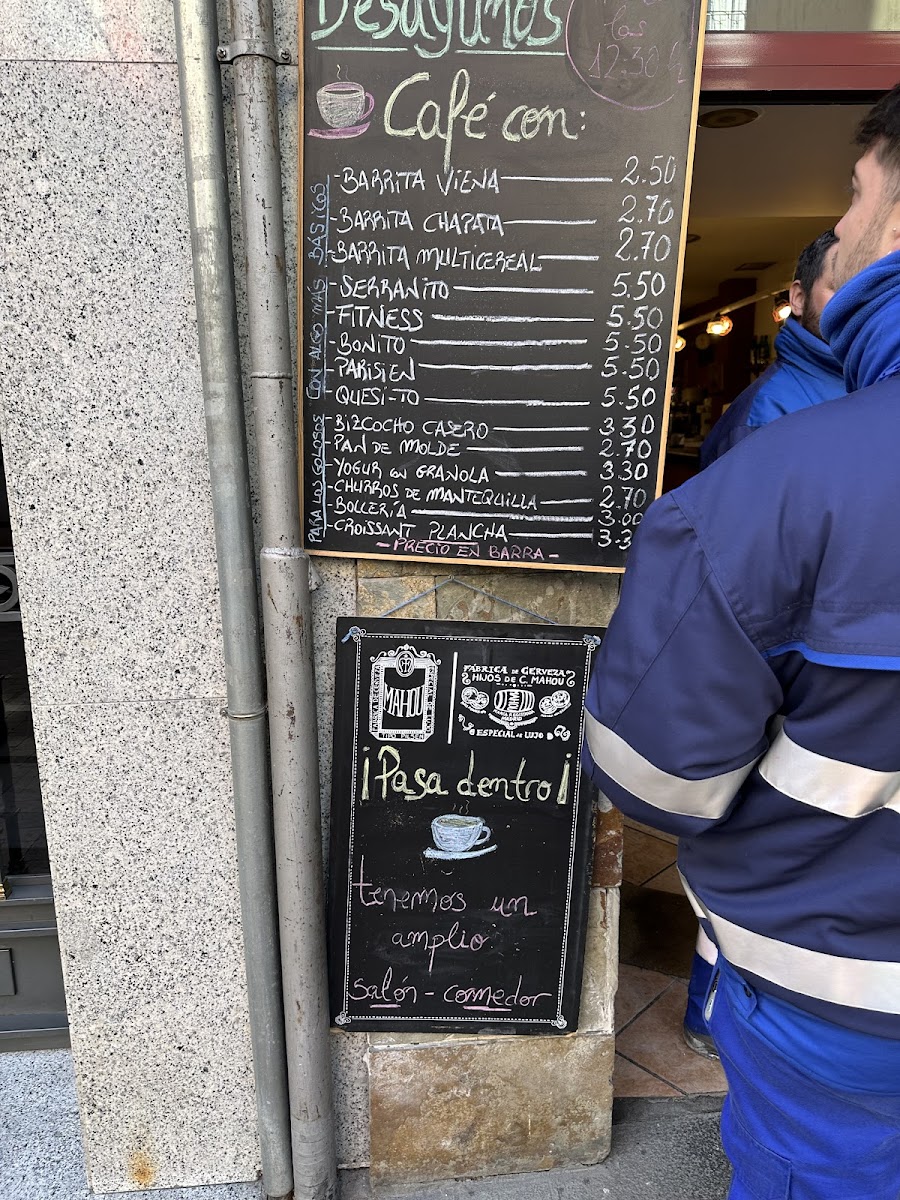 Desayunos
las
12:30 h
Café con:
BÁSICOS
-BARRITA VIENA 2.50
-BARRITA CHAPATA 2.70
-BARRITA MULTICEREAL 2.70
CON ALGO MÁS
-SERRANITO 5.50
-FITNESS 5.50
-BONITO 5.50
-PARISIEN 5.50
-QUESI-TO 5.50
PARA LOS GOLOSOS
-BIZCOCHO CASERO 3.30
-PAN DE MOLDE 2.70
-YOGUR CON GRANOLA 3.30
-CHURROS DE MANTEQUILLA 2.70
-BOLLERÍA 3.00
-CROISSANT PLANCHA 3.3
-PRECIO EN BARRA-
MAHOU
TIPO PILSEN
FÁBRICA DE CERVEZA
HIJOS DE C. MAHOU
MADRID
ESPECIAL DE LUJO
¡Pasa dentro!
tenemos un
amplio
salón - comedor